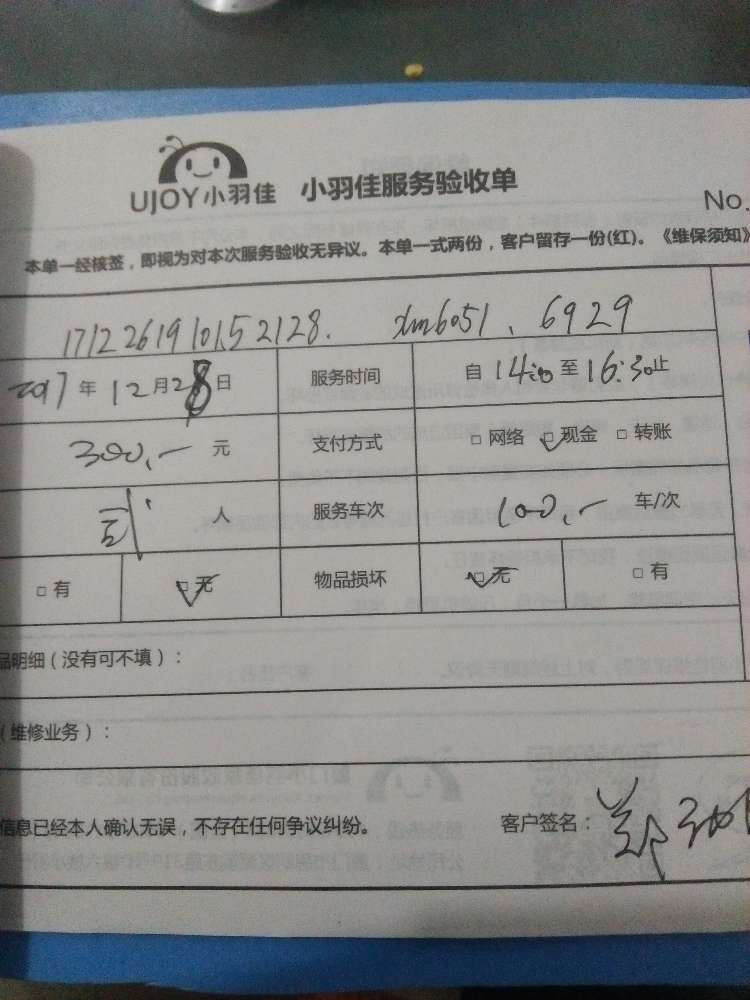 UJOY小羽佳 小羽佳服务验收单
No.
本单一经核签，即视为对本次服务验收无异议。本单一式两份，客户留存一份(红)。《维保须知》
171226191015 2128. xm6051、6929
2017年12月28日 服务时间 自14:00至16:30止
300.- 元 支付方式 □网络 ☑现金 □转账
贰 人 服务车次 100.- 车/次
□有 ☑无 物品损坏 ☑无 □有
品明细（没有可不填）：
（维修业务）：
信息已经本人确认无误，不存在任何争议纠纷。 客户签名：